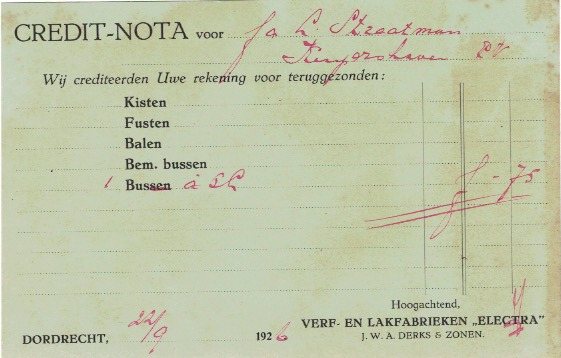 CREDIT-NOTA voor Straatman
Wij crediteerden Uwe rekening voor teruggezonden:
Kisten
Fusten
Balen
Bem. bussen
1 Bussen à 5L f - 75
Hoogachtend,
VERF- EN LAKFABRIEKEN „ELECTRA"
DORDRECHT, 22/9 1926 J. W. A. DERKS & ZONEN.